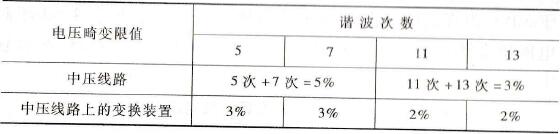 电压畸变限值 谐波次数
5 7 11 13
中压线路 5次+7次=5% 11次+13次=3%
中压线路上的变换装置 3% 3% 2% 2%